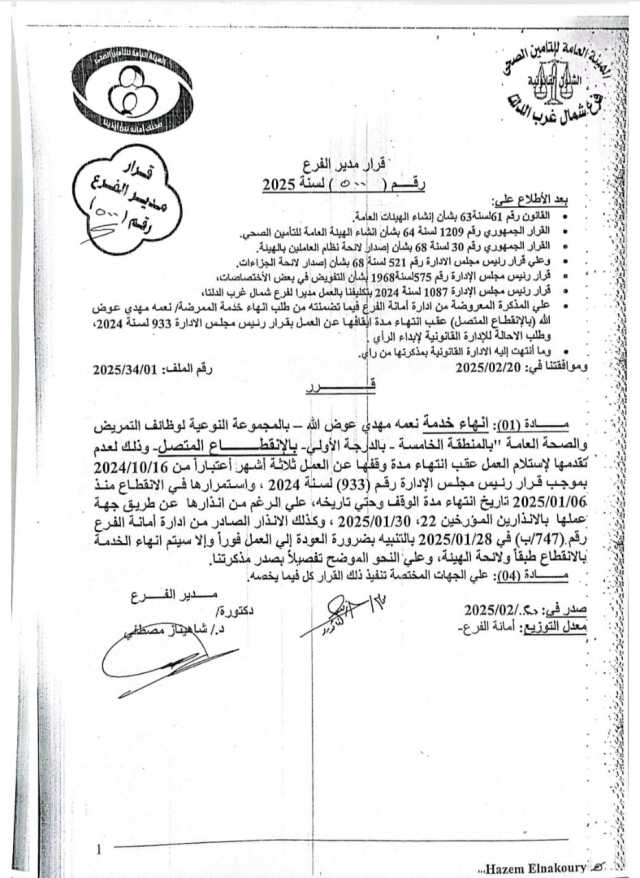 الهيئة العامة للتأمين الصحي
الهيئة العامة للتأمين الصحي
الشئون القانونية
فرع شمال غرب الدلتا
صحتك أمانة بين أيدينا
قرار
مدير الفرع
رقم (٥٠٠)
قرار مدير الفرع
رقــم ( ٥٠٠ ) لسنة 2025
بعد الأطلاع علي:
• القانون رقم 61لسنة63 بشأن إنشاء الهيئات العامة.
• القرار الجمهوري رقم 1209 لسنة 64 بشأن إنشاء الهيئة العامة للتأمين الصحي.
• القرار الجمهوري رقم 30 لسنة 68 بشأن إصدار لائحة نظام العاملين بالهيئة.
• وعلي قرار رئيس مجلس الادارة رقم 521 لسنة 68 بشأن إصدار لائحة الجزاءات.
• قرار رئيس مجلس الإدارة رقم 575لسنة1968 بشأن التفويض في بعض الأختصاصات،
• قرار رئيس مجلس الإدارة 1087 لسنة 2024 بتكليفنا بالعمل مديرا لفرع شمال غرب الدلتا،
• علي المذكرة المعروضة من ادارة أمانة الفرع فيما تضمنته من طلب انهاء خدمة الممرضة/ نعمه مهدي عوض
الله (بالإنقطاع المتصل) عقب إنتهاء مدة ايقافها عن العمل بقرار رئيس مجلس الادارة 933 لسنة 2024،
وطلب الاحالة للإدارة القانونية لإبداء الرأي .
• وما أنتهت إليه الادارة القانونية بمذكرتها من رأي.
وموافقتنا في: 2025/02/20 رقم الملف: 2025/34/01
قــــــــرر
مــــادة (01): إنهاء خدمة نعمه مهدي عوض الله – بالمجموعة النوعية لوظائف التمريض
والصحة العامة "بالمنطقة الخامسة - بالدرجة الأولي- بالإنقطــــــاع المتصل- وذلك لعدم
تقدمها لإستلام العمل عقب انتهاء مدة وقفها عن العمل ثلاثة أشهر أعتباراً من 2024/10/16
بموجب قرار رئيس مجلس الإدارة رقم (933) لسنة 2024 ، واستمرارها في الانقطاع منذ
2025/01/06 تاريخ انتهاء مدة الوقف وحتي تاريخه، علي الرغم من انذارها عن طريق جهة
عملها بالانذارين المؤرخين 22، 2025/01/30 ، وكذلك الانذار الصادر من ادارة أمانة الفرع
رقم (747/ب) في 2025/01/28 بالتنبيه بضرورة العودة إلي العمل فوراً وإلا سيتم انهاء الخدمة
بالانقطاع طبقاً ولائحة الهيئة، وعلي النحو الموضح تفصيلاً بصدر مذكرتنا.
مــــادة (04): علي الجهات المختصة تنفيذ ذلك القرار كل فيما يخصه.
مــدير الفــرع
صدر في: ٢٠/2025/02
دكتورة/
معدل التوزيع: أمانة الفرع-
د./ شاهيناز مصطفي
1
Hazem Elnakoury...